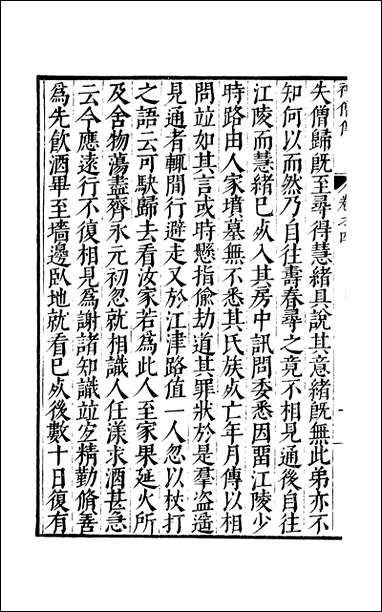 神僧傳 卷之四
失僧歸旣至尋得慧緒具說其意緒旣無此弟亦不
知何以而然乃自往壽春尋之竟不相見通後自往
江陵而慧緒已死入其房中訊問委悉因畱江陵少
時路由人家墳墓無不悉其氏族死亡年月傳以相
問竝如其言或時懸指偷劫道其罪狀於是羣盜遥
見通者輒間行避走又於江津路值一人忽以杖打
之語云可駃歸去看汝家若爲此人至家果延火所
及舍物蕩盡齊永元初忽就相識人任漾求酒甚急
云今應遠行不復相見爲謝諸知識竝宜精勤脩善
爲先飲酒畢至墻邊臥地就看已死後數十日復有